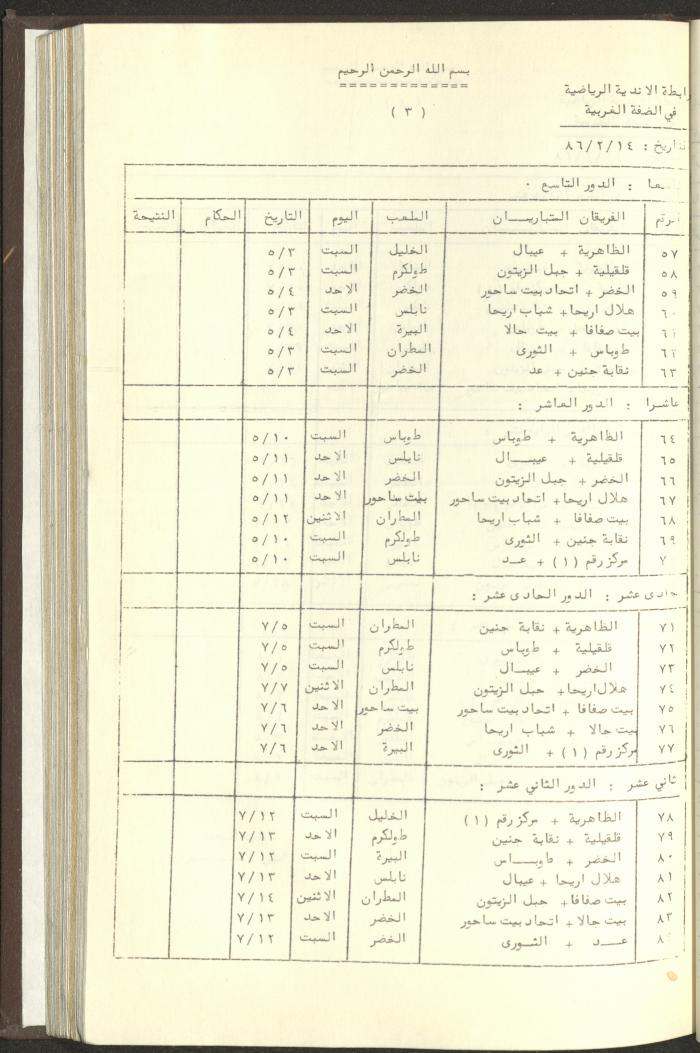 بسم الله الرحمن الرحيم
رابطة الاندية الرياضية
في الضفة الغربية
( ٣ )
التاريخ : ٨٦/٢/١٤
تاسعا : الدور التاسع .
الرقم الفريقان المتباريـــان الملعب اليوم التاريخ الحكام النتيجة
٥٧ الظاهرية + عيبال الخليل السبت ٥/٣
٥٨ قلقيلية + جبل الزيتون طولكرم السبت ٥/٣
٥٩ الخضر + اتحاد بيت ساحور الخضر الاحد ٥/٤
٦٠ هلال اريحا + شباب اريحا نابلس السبت ٥/٣
٦١ بيت صفافا + بيت جالا البيرة الاحد ٥/٤
٦٢ طوباس + الثورى المطران السبت ٥/٣
٦٣ نقابة جنين + عد الخضر السبت ٥/٣
عاشرا : الدور العاشر :
٦٤ الظاهرية + طوباس طوباس السبت ٥/١٠
٦٥ قلقيلية + عيبـــال نابلس الاحد ٥/١١
٦٦ الخضر + جبل الزيتون الخضر الاحد ٥/١١
٦٧ هلال اريحا + اتحاد بيت ساحور بيت ساحور الاحد ٥/١١
٦٨ بيت صفافا + شباب اريحا المطران الاثنين ٥/١٢
٦٩ نقابة جنين + الثورى طولكرم السبت ٥/١٠
٧ مركز رقم (١) + عــد نابلس السبت ٥/١٠
حادى عشر : الدور الحادى عشر :
٧١ الظاهرية + نقابة جنين المطران السبت ٧/٥
٧٢ قلقيلية + طوباس طولكرم السبت ٧/٥
٧٣ الخضر + عيبــال نابلس السبت ٧/٥
٧٤ هلال اريحا + جبل الزيتون المطران الاثنين ٧/٧
٧٥ بيت صفافا + اتحاد بيت ساحور بيت ساحور الاحد ٧/٦
٧٦ بيت جالا + شباب اريحا الخضر الاحد ٧/٦
٧٧ مركز رقم (١) + الثورى البيرة الاحد ٧/٦
ثاني عشر : الدور الثاني عشر :
٧٨ الظاهرية + مركز رقم (١) الخليل السبت ٧/١٢
٧٩ قلقيلية + نقابة جنين طولكرم الاحد ٧/١٣
٨٠ الخضر + طوبـــاس البيرة السبت ٧/١٢
٨١ هلال اريحا + عيبال نابلس الاحد ٧/١٣
٨٢ بيت صفافا + جبل الزيتون المطران الاثنين ٧/١٤
٨٣ بيت جالا + اتحاد بيت ساحور الخضر الاحد ٧/١٣
٨٤ عـــد + الثــورى الخضر السبت ٧/١٢